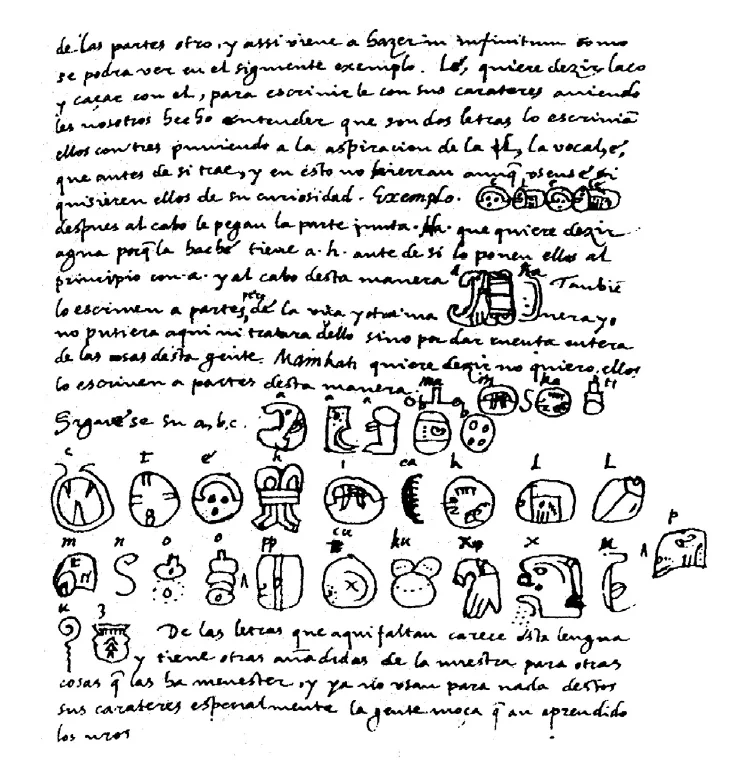 de las partes otro, y assi viene a hazer in infinitum como
se podra ver en el siguiente exemplo. Lé, quiere dezir laço
y caçar con el, para escrivirle con sus carateres aviendo
les nosotros hecho entender que son dos letras lo escrivian
ellos con tres puniendo a la aspiracion de la l, la vocal, é,
que antes de si trae, y en esto no hierran aunq̃ usense si
quisieren ellos de su curiosidad. Exemplo. e l e lé
despues al cabo le pegan la parte junta. Ha. que quiere dezir
agua porq̃ la haché tiene a. h. ante de si lo ponen ellos al
principio con. a. y al cabo desta manera a ha Tambiẽ
lo escriven a partes, pero de la una y otra ma nera yo
no pusiera aqui ni tratara dello sino por dar cuenta entera
de las cosas desta gente. Mainkati quiere dezir no quiero, ellos
lo escriven a partes desta manera. ma i n ka ti
Siguese su a, b, c. a a a b b
c t é h i ca k l l
m n o o pp cu ku x x u p
u z De las letras que aqui faltan carece esta lengua
y tiene otras añadidas de la nuestra para otras
cosas q̃ las ha menester, y ya no usan para nada destos
sus carateres especialmente la gente moça q̃ an aprendido
los nros